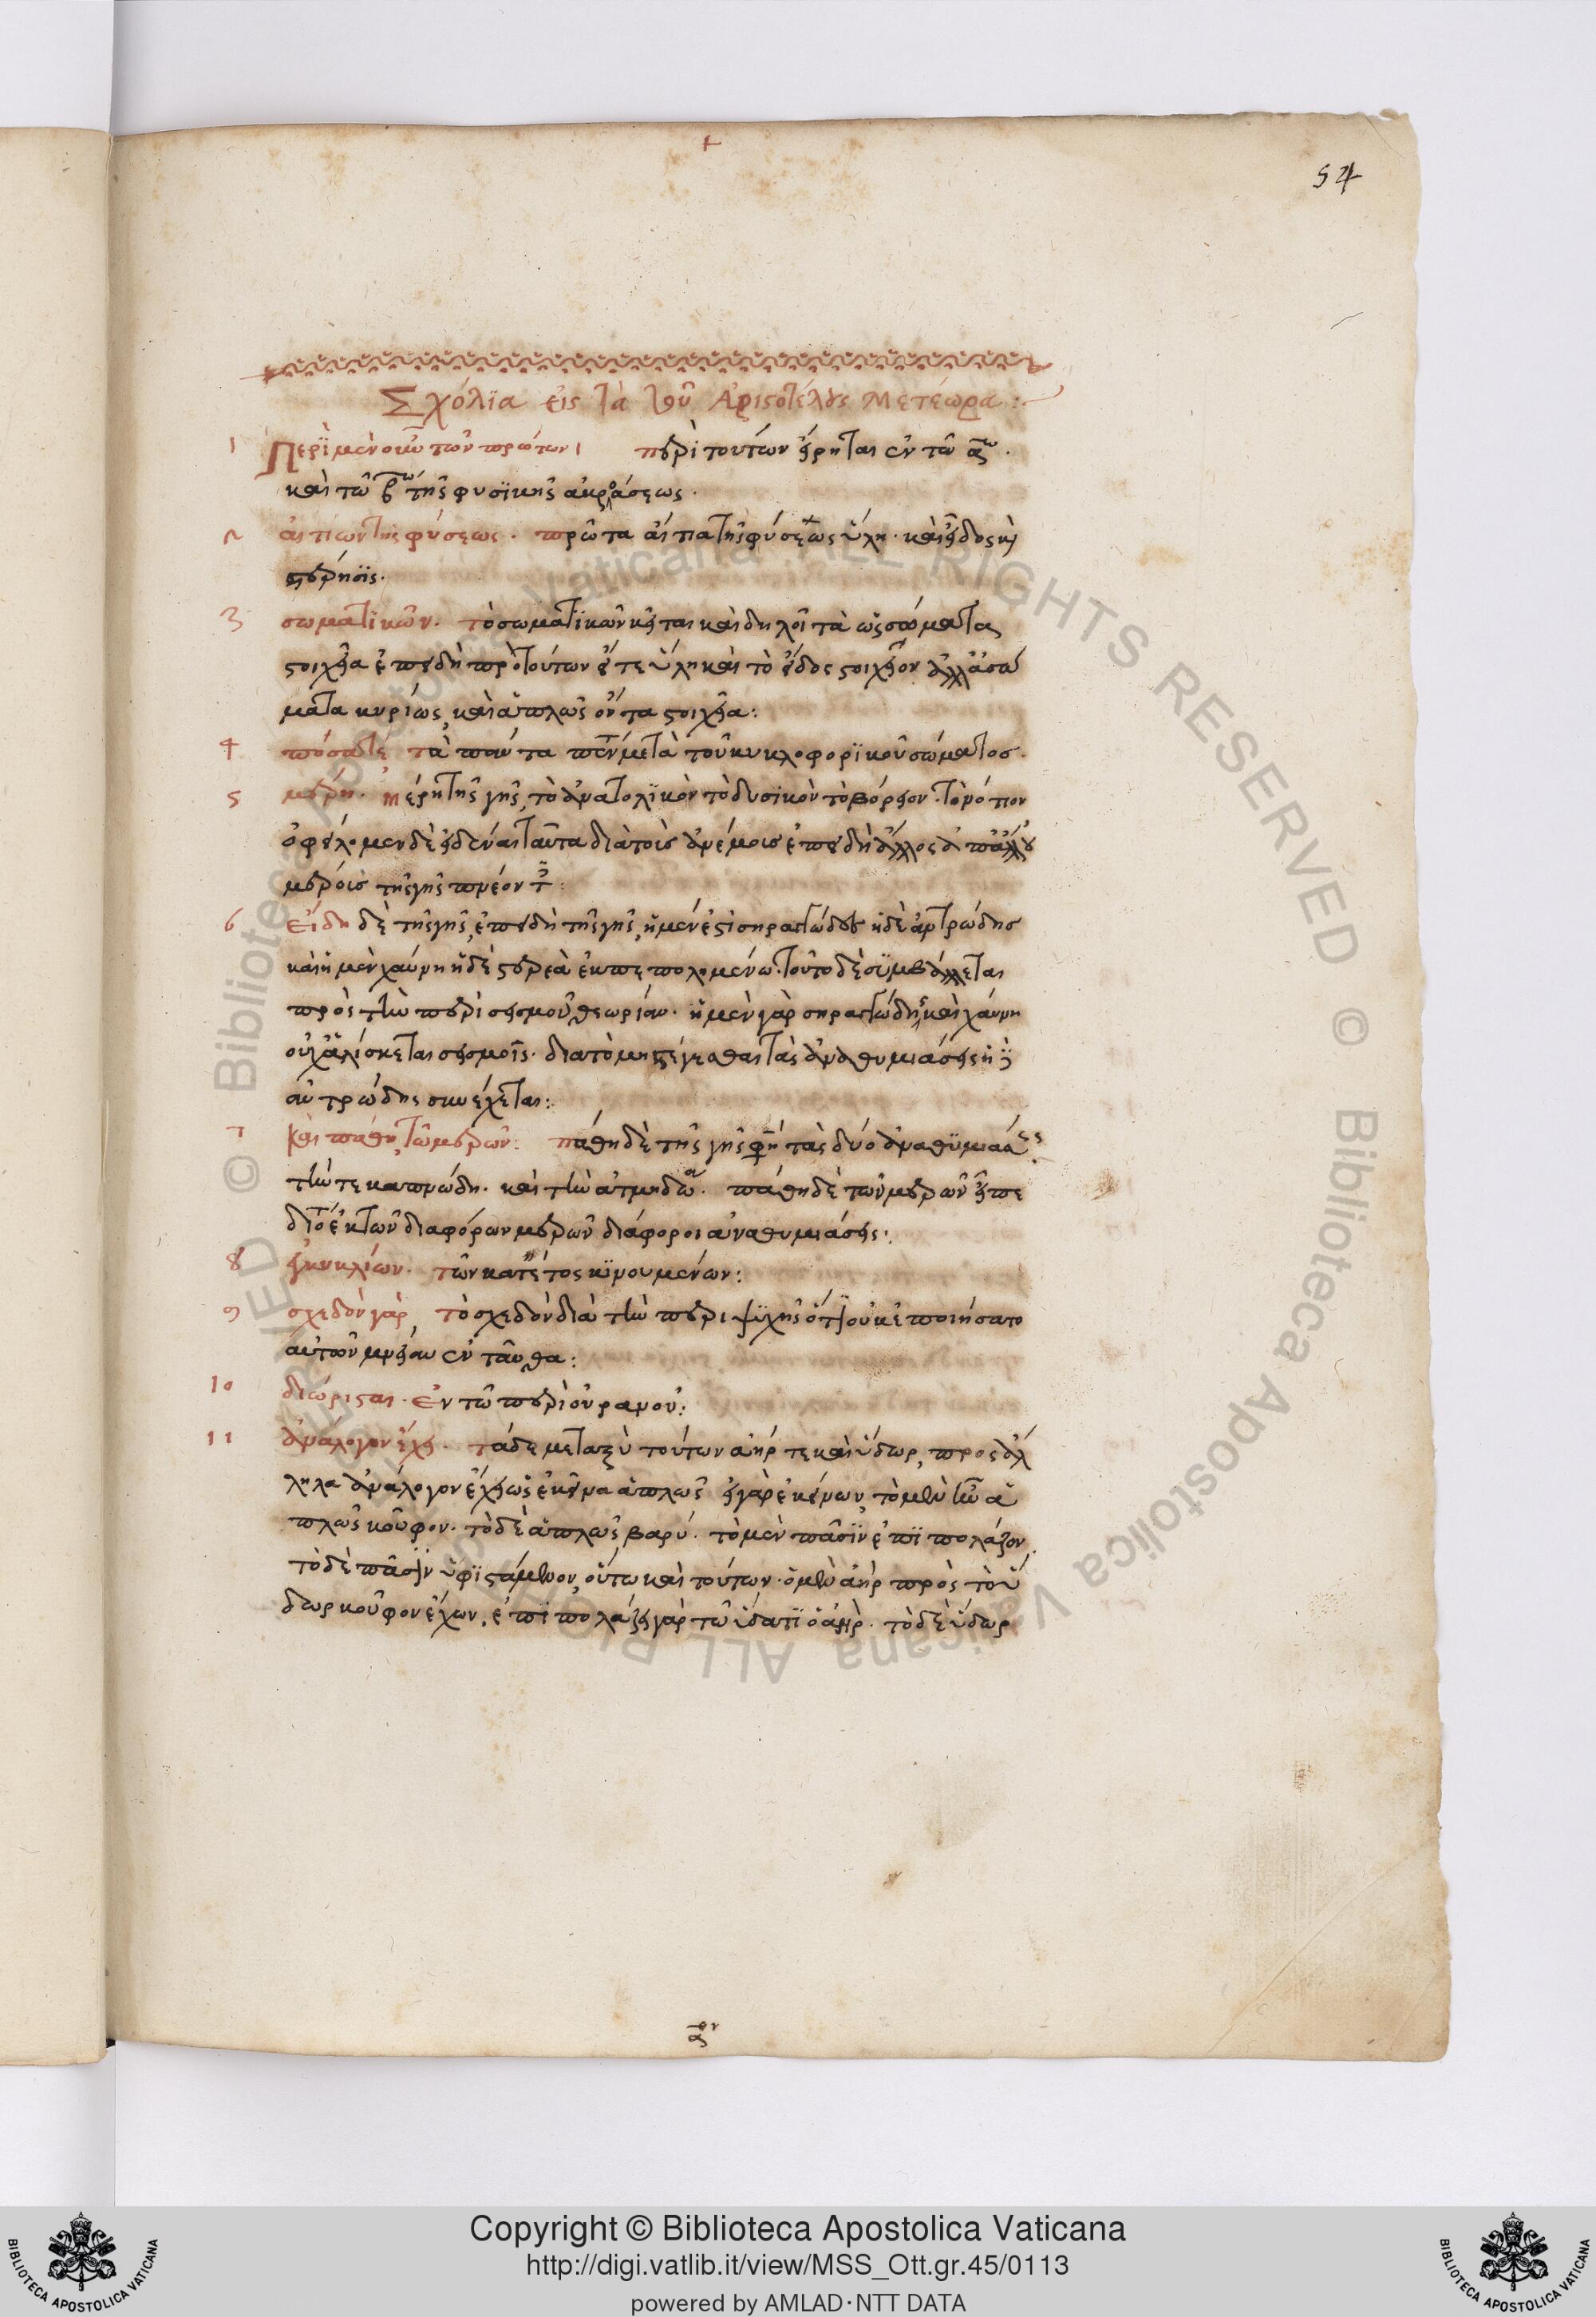 54
Σχόλϊα εἰς τὰ τοῦ Ἀριστοτέλους Μετέωρα :
1 Περῒ μὲν οὖν τῶν πρώτων περὶ τούτων εἴρηται ἐν τῶ αω.
καὶ τῶ βω τῆς φυσϊκῆς ἀκροάσεως.
2 αἰτίων τῆς φύσεως. πρῶτα αἴτια τῆς φύσεως ὕλη. καὶ εἶδος κὶ
στέρησϊς.
3 σωματϊκῶν. τὸ σωματϊκῶν κεῖται καὶ δηλοῖ τὰ ὡς σώματα
στοιχεῖα ἐπειδὴ πρὸ τούτων ἥτε ὕλη καὶ τὸ εἶδος στοιχεῖον ἀλλὰ σώ
ματα κυρίως, καὶ ἁπλῶς ὄντα στοιχεῖα :
4 πόσα τέ τὰ πάντα πέντε μετὰ τοῦ κυκλοφορϊκοῦ σώματος.
5 μέρη. μέρη τῆς γῆς, τὸ ἀνατολϊκὸν τὸ δυσϊκὸν τὸ βόρειον. τὸ νότιον
ὀφείλομεν δὲ εἰδέναι ταῦτα διὰ τοὺς ἀνέμους ἐπειδὴ ἄλλος ἀπ' ἄλλου
μέρους τῆς γῆς πνέον τ :
6 εἴδη δὲ τῆς γῆς, ἐπειδὴ τῆς γῆς, ἡ μέν ἐστι σηραγγώδης ἡ δὲ ἀντρώδης
καὶ ἡ μὲν χαύνη ἡ δὲ στερεὰ τοῦτο δὲ συμβάλλεται
πρὸς τὴν περὶ σεισμοῦ θεωρίαν. ἡ μὲν γὰρ σηραγγώδης καὶ χαύνη
οὐχ ἁλίσκεται σεισμοῖς. διὰ τὸ μὴ στέγεσθαι τὰς ἀναθυμιάσεις ἡ δὲ
ἀντρώδης συνέχεται :
7 καὶ πάθη τῶν μερῶν : πάθη δὲ τῆς γῆς φησὶ τὰς δύο ἀναθυμιάσεις
τήν τε καπνώδη. καὶ τὴν ἀτμηδώδη. πάθη δὲ τῶν μερῶν εἶπε
διότι ἐκ τῶν διαφόρων μερῶν διάφοροι ἀναθυμιάσεις :
8 ἐγκυκλίων. τῶν κατ' ἔτος κϊνουμένων :
9 σχεδὸν γὰρ, τὸ σχεδὸν διὰ τὴν περι ψυχῆς ὅτι οὐκ ἐποιήσατο
αὐτῶν μνείαν ἐν ταῦθα :
10 διώρισται. Ἐν τῶ περὶ οὐρανοῦ :
11 ἀνάλογον ἔχει. τάδε μεταξὺ τούτων ἀήρ τε καὶ ὕδωρ, προς ἄλ
ληλα ἀνάλογον ἔχει ὡς ἐκεῖνα ἁπλῶς εἰ γὰρ ἐκείνων, τὸ μὲν ἦν ἁ
πλῶς κοῦφον. τὸ δὲ ἁπλῶς βαρύ. τὸ μὲν πᾶσϊν ἐπϊπολάζον,
τὸ δὲ πᾶσιν ὑφϊστάμενον, οὕτω καὶ τούτων. ὁ μὲν ἀὴρ πρὸς τὸ ὕ
δωρ κοῦφον ἔχων, ἐπϊπολάζει γὰρ τῶ ὕδατϊ ὁ ἀήρ. τὸ δὲ ὕδωρ
Copyright © Biblioteca Apostolica Vaticana
http://digi.vatlib.it/view/MSS_Ott.gr.45/0113
powered by AMLAD·NTT DATA